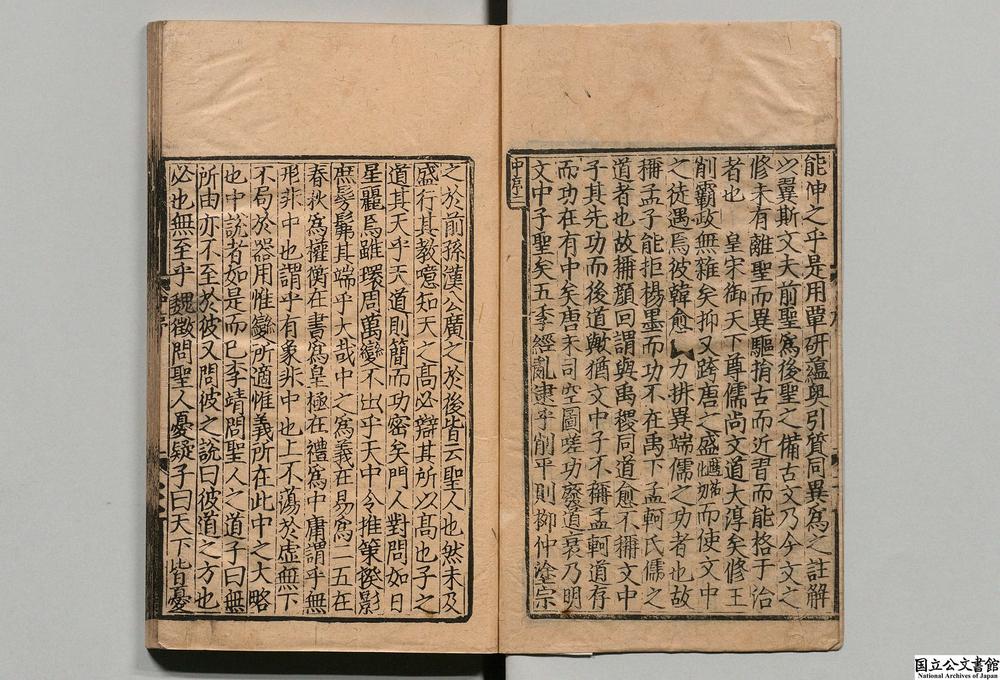 能伸之乎是用覃研蘊奥引質同異爲之註解
以翼斯文夫前聖爲後聖之備古文乃今文之
修未有離聖而異驅捐古而近習而能格于治
者也 皇宋御天下尊儒尚文道大淳矣修王
削霸政無雜矣抑又跨唐之盛而使文中
之徒遇焉彼韓愈力排異端儒之功者也故
稱孟子能拒揚墨而功不在禹下孟軻氏儒之
道者也故稱顔回謂與禹稷同道愈不稱文中
子其先功而後道歟猶文中子不稱孟軻道存
而功在有中矣唐末司空圖嗟功廢道衰乃明
文中子聖矣五季經亂逮乎削平則柳仲塗宗
中序二
之於前孫漢公廣之於後皆云聖人也然未及
盛行其教噫知天之高必辯其所以高也子之
道其天乎天道則簡而功密矣門人對問如日
星麗焉雖環周萬變不出乎天中令推策揆影
庶髣髴其端乎大哉中之爲義在易爲二五在
春秋爲權衡在書爲皇極在禮爲中庸謂乎無
形非中也謂乎有象非中也上不蕩於虛無下
不局於器用惟變所適惟義所在此中之大略
也中說者如是而已李靖問聖人之道子曰無
所由亦不至於彼又問彼之說曰彼道之方也
必也無至乎 魏徵問聖人憂疑子曰天下皆憂
国立公文書館
National Archives of Japan